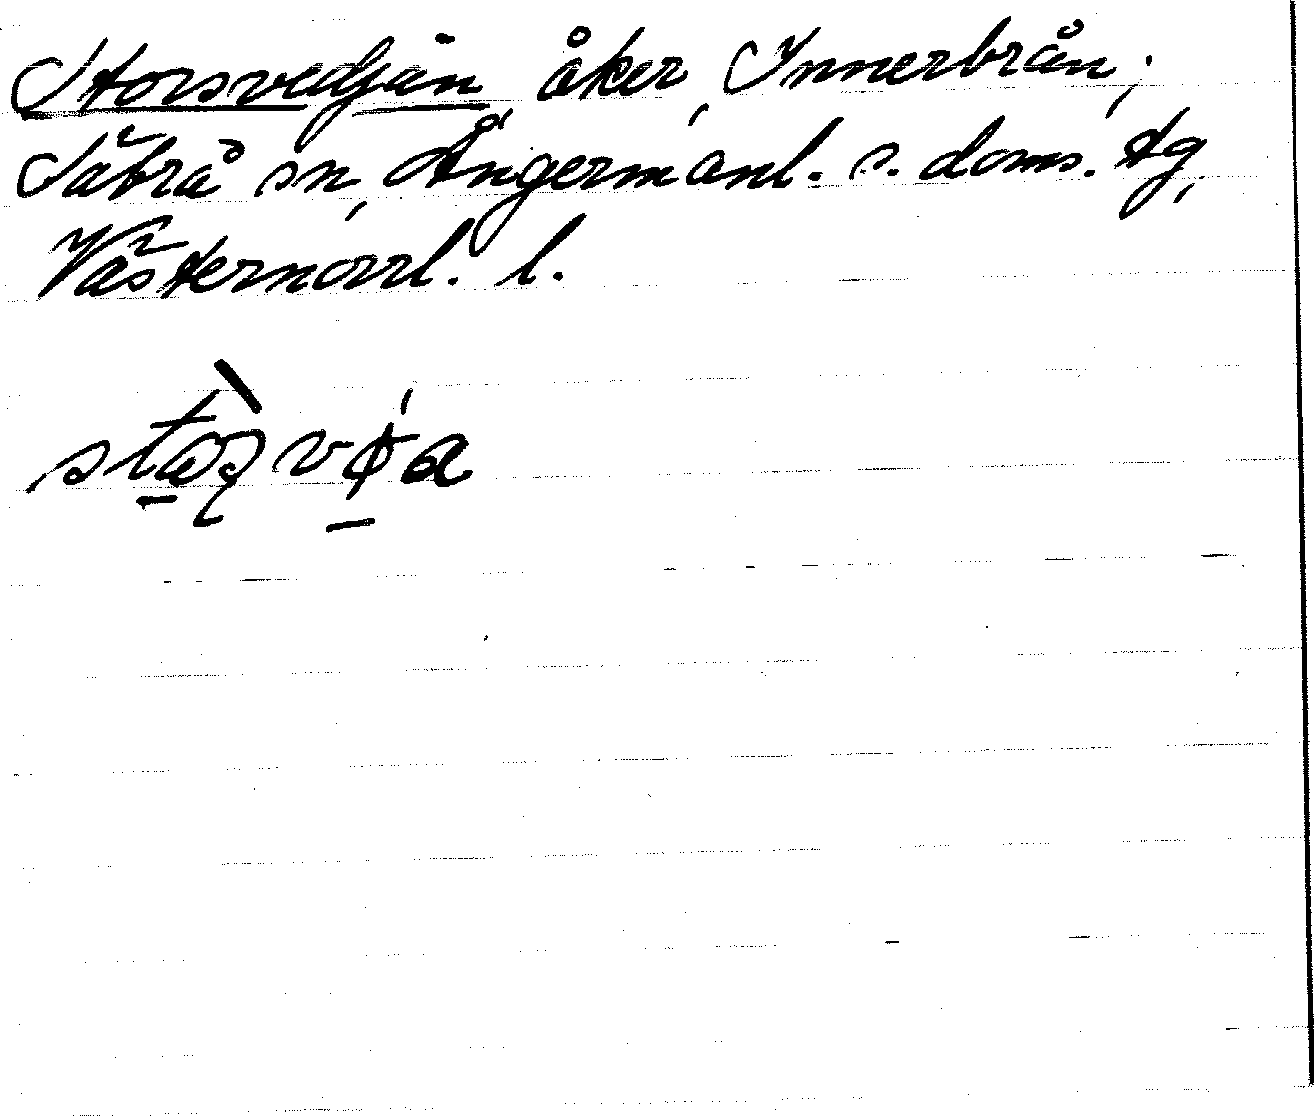 Storsvedjan, åker, Innerbrån,
Säbrå sn, Ångermanl. s. doms. tg,
Västernorrl. l.